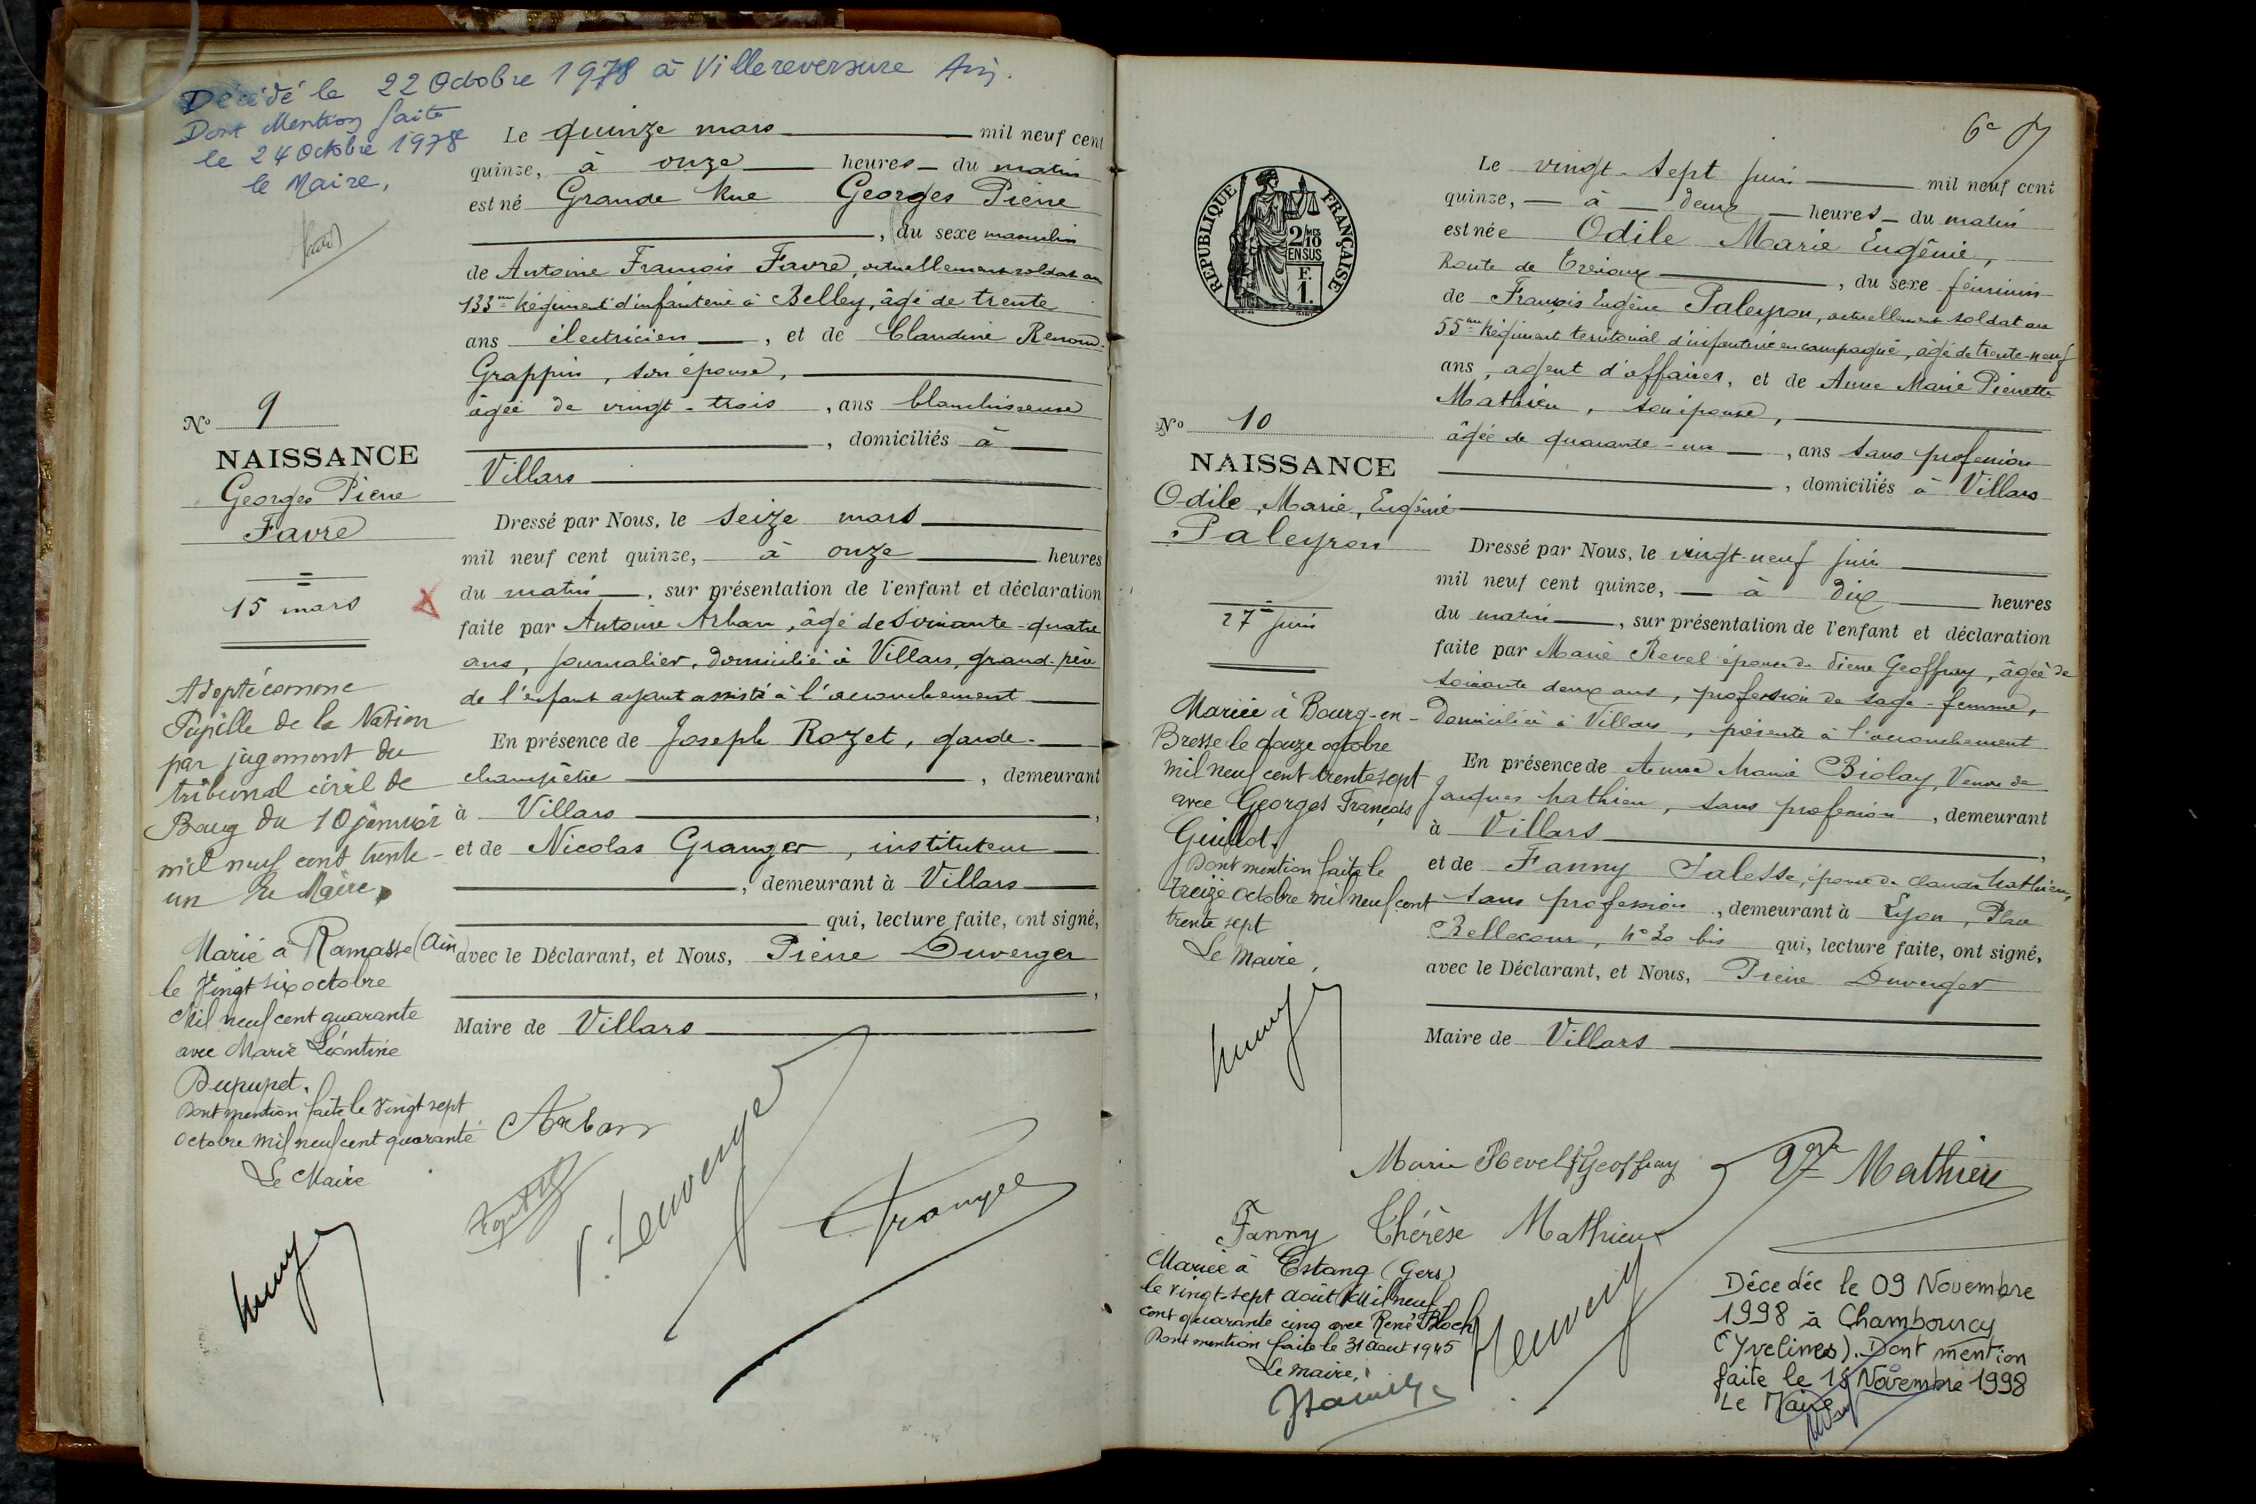 Décédé le 22 Octobre 1978 à Villereversure Ain.
Dont Mention faite
le 24 Octobre 1978
le Maire,
Le quinze mars mil neuf cent
quinze, à onze heures du matin
est né Grande Rue Georges Pierre
, du sexe masculin
de Antoine François Favre, actuellement soldat au
133me Régiment d'infanterie à Belley, âgé de trente
ans électricien, et de Claudine Renoud-
Grappin, son épouse,
âgée de vingt-trois, ans blanchisseuse
, domiciliés à
Villars
No 9
NAISSANCE
Georges Pierre
Favre
15 mars
Dressé par Nous, le seize mars
mil neuf cent quinze, à onze heures
du matin, sur présentation de l'enfant et déclaration
faite par Antoine Arban, âgé de soixante-quatre
ans, journalier, domicilié à Villars, grand-père
de l'enfant ayant assisté à l'accouchement
En présence de Joseph Rozet, garde-
champêtre, demeurant
à Villars,
et de Nicolas Granger, instituteur
, demeurant à Villars
qui, lecture faite, ont signé,
avec le Déclarant, et Nous, Pierre Duverger
,
Maire de Villars
Adopté comme
Pupille de la Nation
par jugement du
tribunal civil de
Bourg du 10 janvier
mil neuf cent trente-
un Le Maire,
Marié à Ramasse (Ain)
le vingt six octobre
Mil neuf cent quarante
avec Marie Léontine
Dupupet.
Dont mention faite le vingt sept
octobre mil neuf cent quarante
Le Maire
Arban
P. Duverger
Granger
6e
REPUBLIQUE FRANÇAISE
2/10 MES
EN SUS
F.
1.
Le vingt-sept juin mil neuf cent
quinze, à deux heures du matin
est née Odile Marie Eugénie,
Route de Trévoux, du sexe féminin
de François Eugène Paleyron, actuellement soldat au
55me Régiment territorial d'infanterie en campagne, âgé de trente-neuf
ans, agent d'affaires, et de Anne Marie Pierrette
Mathieu, son épouse,
âgée de quarante-un, ans sans profession
, domiciliés à Villars
No 10
NAISSANCE
Odile, Marie, Eugénie
Paleyron
27 juin
Dressé par Nous, le vingt-neuf juin
mil neuf cent quinze, à dix heures
du matin, sur présentation de l'enfant et déclaration
faite par Marie Revel épouse de Pierre Geoffray, âgée de
soixante deux ans, profession de sage-femme,
domiciliée à Villars, présente à l'accouchement
En présence de Anne Marie Biolay, Veuve de
Jacques Mathieu, sans profession, demeurant
à Villars,
et de Fanny Salesse, épouse de Claude Mathieu,
sans profession, demeurant à Lyon, Place
Bellecour, No 20 bis qui, lecture faite, ont signé,
avec le Déclarant, et Nous, Pierre Duverger
Maire de Villars
Mariée à Bourg-en-
Bresse le douze octobre
mil neuf cent trente sept
avec Georges François
Guillot.
Dont mention faite le
treize octobre mil neuf cent
trente sept
Le Maire,
Marie Revel f Geoffray
Vve Mathieu
Fanny Thérèse Mathieu
Mariée à Estang (Gers)
le vingt-sept août Mil neuf
cent quarante cinq avec René Bloch
Dont mention faite le 31 août 1945
Le maire,
Décedée le 09 Novembre
1998 à Chambourcy
(Yvelines). Dont mention
faite le 18 Novembre 1998
Le Maire